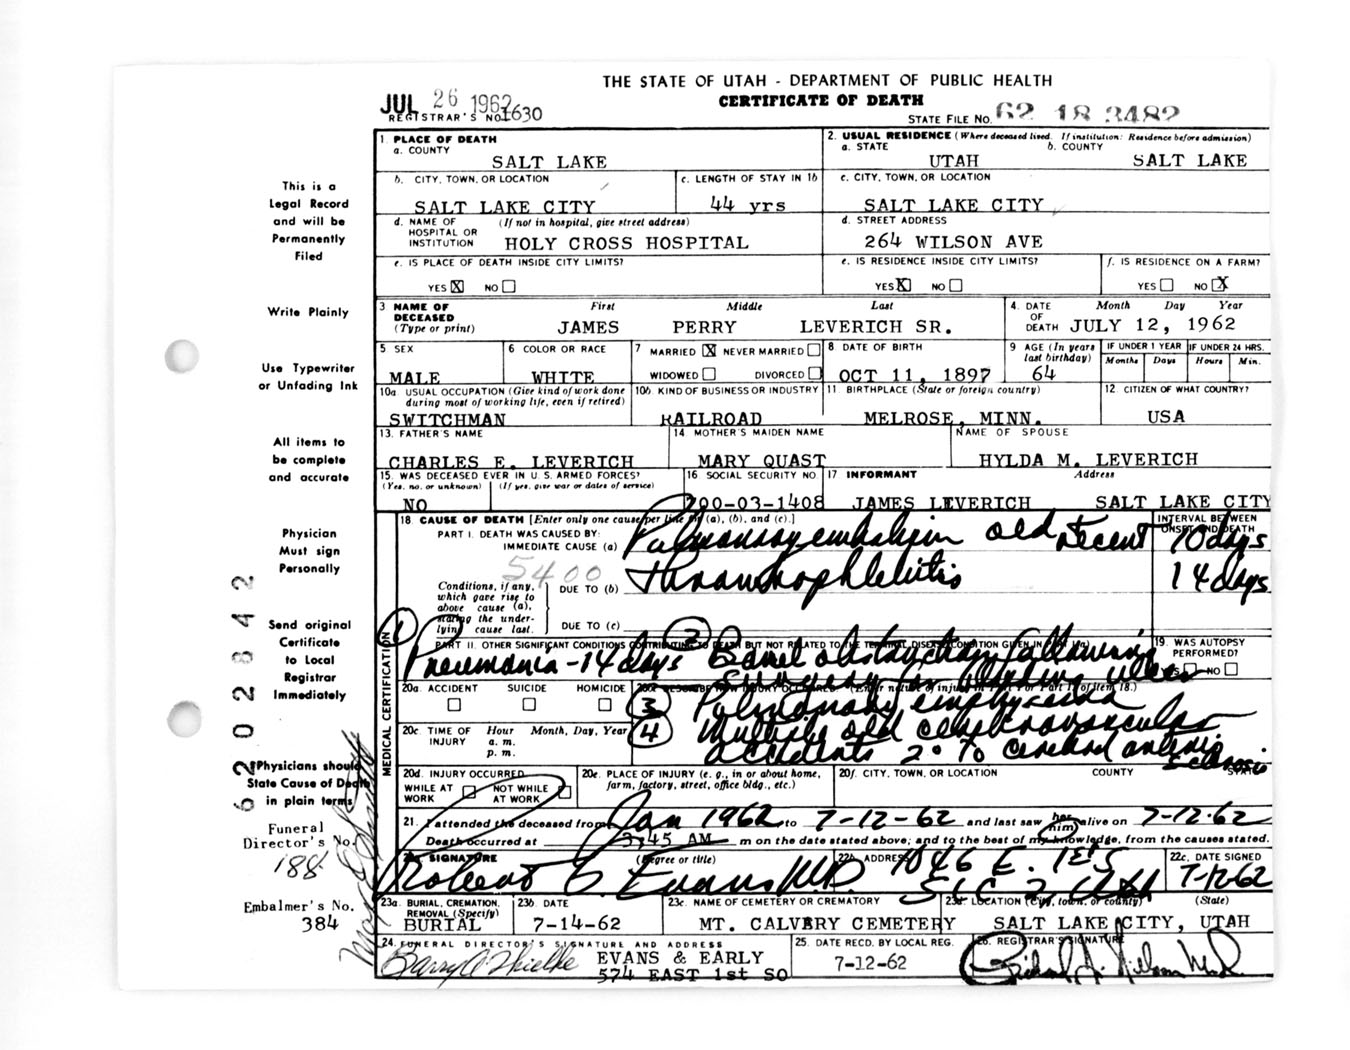 THE STATE OF UTAH - DEPARTMENT OF PUBLIC HEALTH
CERTIFICATE OF DEATH
JUL 26 1962
REGISTRAR'S NO. 1630
STATE FILE NO. 62 18 2482
1. PLACE OF DEATH
a. COUNTY
SALT LAKE
2. USUAL RESIDENCE (Where deceased lived. If institution: Residence before admission)
a. STATE b. COUNTY
UTAH SALT LAKE
b. CITY, TOWN, OR LOCATION
SALT LAKE CITY
c. LENGTH OF STAY IN 1b
44 yrs
c. CITY, TOWN, OR LOCATION
SALT LAKE CITY
d. NAME OF HOSPITAL OR INSTITUTION (If not in hospital, give street address)
HOLY CROSS HOSPITAL
d. STREET ADDRESS
264 WILSON AVE
e. IS PLACE OF DEATH INSIDE CITY LIMITS?
YES X NO
e. IS RESIDENCE INSIDE CITY LIMITS?
YES X NO
f. IS RESIDENCE ON A FARM?
YES NO X
3 NAME OF DECEASED (Type or print)
First Middle Last
JAMES PERRY LEVERICH SR.
4. DATE OF DEATH Month Day Year
JULY 12, 1962
5 SEX
MALE
6 COLOR OR RACE
WHITE
7 MARRIED X NEVER MARRIED
WIDOWED DIVORCED
8 DATE OF BIRTH
OCT 11, 1897
9 AGE (In years last birthday)
64
IF UNDER 1 YEAR IF UNDER 24 HRS.
Months Days Hours Min.
10a. USUAL OCCUPATION (Give kind of work done during most of working life, even if retired)
SWITCHMAN
10b. KIND OF BUSINESS OR INDUSTRY
RAILROAD
11. BIRTHPLACE (State or foreign country)
MELROSE, MINN.
12. CITIZEN OF WHAT COUNTRY?
USA
13. FATHER'S NAME
CHARLES E. LEVERICH
14 MOTHER'S MAIDEN NAME
MARY QUAST
NAME OF SPOUSE
HYLDA M. LEVERICH
15. WAS DECEASED EVER IN U. S. ARMED FORCES?
(Yes, no, or unknown) (If yes, give war or dates of service)
NO
16 SOCIAL SECURITY NO.
700-03-1408
17 INFORMANT Address
JAMES LEVERICH SALT LAKE CITY
18. CAUSE OF DEATH [Enter only one cause per line for (a), (b), and (c).]
PART I. DEATH WAS CAUSED BY:
IMMEDIATE CAUSE (a) Pulmonary embolism old & recent
INTERVAL BETWEEN ONSET AND DEATH
10 days
5400
Conditions, if any, which gave rise to above cause (a), stating the underlying cause last.
DUE TO (b) Thrombophlebitis
14 days
DUE TO (c)
MEDICAL CERTIFICATION
PART II. OTHER SIGNIFICANT CONDITIONS CONTRIBUTING TO DEATH BUT NOT RELATED TO THE TERMINAL DISEASE CONDITION GIVEN IN PART I(a)
1 Pneumonia - 14 days 2 Bowel obstruction following
surgery for bleeding ulcer
3 Pulmonary emphysema
4 Multiple old cerebrovascular
accidents 2° to cerebral arterio
sclerosis
19. WAS AUTOPSY PERFORMED?
YES NO
20a. ACCIDENT SUICIDE HOMICIDE
20b. DESCRIBE HOW INJURY OCCURRED. (Enter nature of injury in Part I or Part II of item 18.)
20c. TIME OF INJURY Hour Month, Day, Year
a. m.
p. m.
20d. INJURY OCCURRED
WHILE AT WORK NOT WHILE AT WORK
20e. PLACE OF INJURY (e. g., in or about home, farm, factory, street, office bldg., etc.)
20f. CITY, TOWN, OR LOCATION COUNTY STATE
21. I attended the deceased from Jan 1962 to 7-12-62 and last saw her him alive on 7-12-62
Death occurred at 3:45 AM m on the date stated above; and to the best of my knowledge, from the causes stated.
22a. SIGNATURE (Degree or title)
Robert E. Evans M.D.
22b. ADDRESS
1046 E. 1st S
SLC 2, Utah
22c. DATE SIGNED
7-12-62
23a. BURIAL, CREMATION, REMOVAL (Specify)
BURIAL
23b. DATE
7-14-62
23c. NAME OF CEMETERY OR CREMATORY
MT. CALVERY CEMETERY
23d. LOCATION (City, town, or county) (State)
SALT LAKE CITY, UTAH
24. FUNERAL DIRECTOR'S SIGNATURE AND ADDRESS
EVANS & EARLY
574 EAST 1st SO
25. DATE RECD. BY LOCAL REG.
7-12-62
26. REGISTRAR'S SIGNATURE
This is a
Legal Record
and will be
Permanently
Filed
Write Plainly
Use Typewriter
or Unfading Ink
All items to
be complete
and accurate
Physician
Must sign
Personally
Send original
Certificate
to Local
Registrar
Immediately
*Physicians should
State Cause of Death
in plain terms
Funeral
Director's No.
188
Embalmer's No.
384